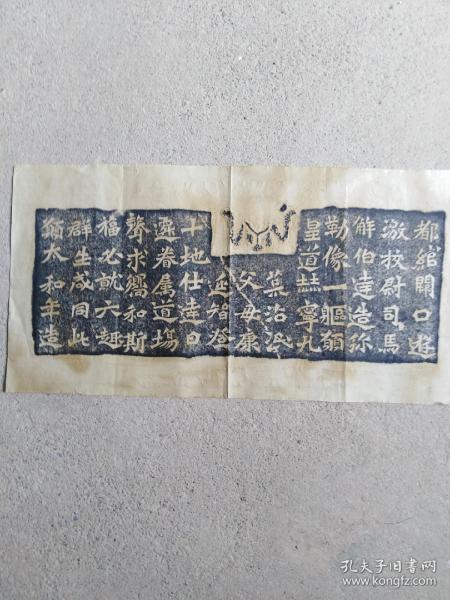 都綰闕口遊
激校尉司馬
解伯達造弥
勒像一軀願
皇道赫寧九
荒沾
父母康
延智登
十地仕達日
遷眷屬道場
聲求響和斯
福必就六趣
群生咸同此
願太和年造
孔夫子旧书网
www.kongfz.com